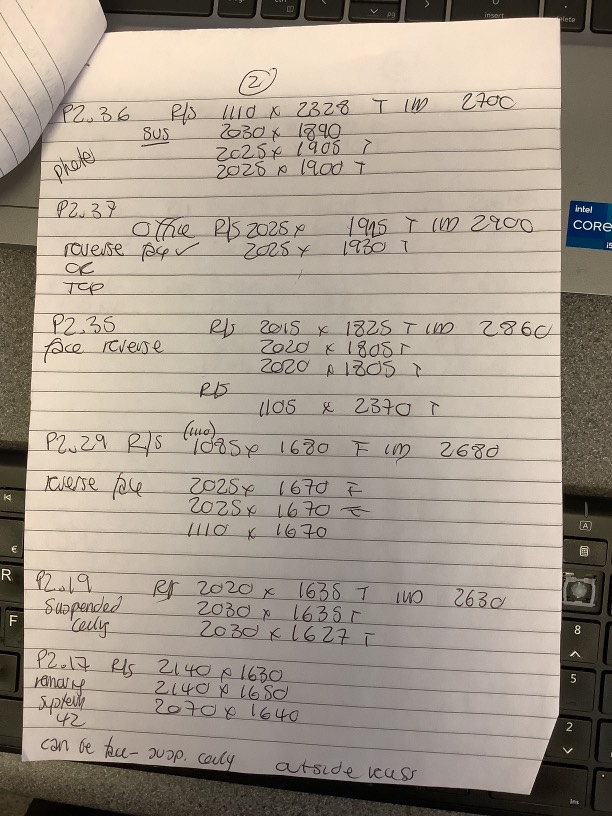 2
P2.36 R/S 1110 x 2328 T IM 2700
SUS 2030 x 1890
photo 2025 x 1905 T
2025 x 1900 T
P2.37
Office R/S 2025 x 1915 T IM 2900
reverse face ✓ 2025 x 1930 T
OR
TCP
P2.35 R/S 2015 x 1825 T IM 2860
face reverse 2020 x 1805 T
2020 x 1805 T
R/S
1105 x 2370 T
P2.29 R/S (1110) 1085 x 1680 F IM 2680
reverse face 2025 x 1670 F
2025 x 1670 F
1110 x 1670
P2.19 R/S 2020 x 1635 T IM 2630
Suspended 2030 x 1635 T
ceily 2030 x 1627 T
P2.17 R/S 2140 x 1630
2140 x 1650
system 2070 x 1640
42
can be face - susp. ceily outside
intel
CORE
i5
insert
delete
pg
R
F
€
A
8
5
2
Ins